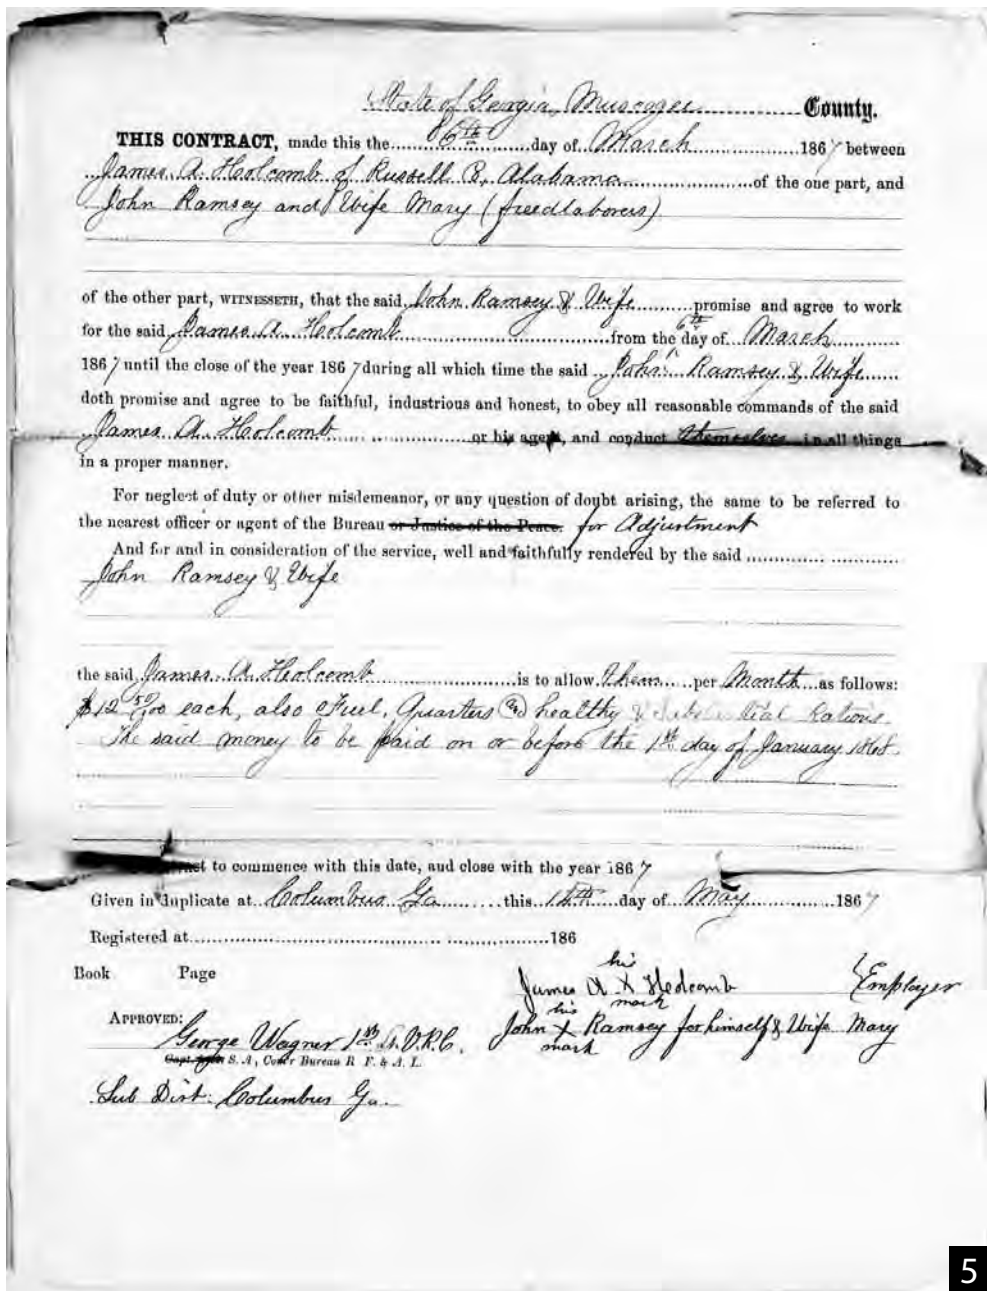 State of Georgia, Muscogee County.
THIS CONTRACT, made this the 6th day of March 1867 between
James A. Holcomb of Russell Alabama of the one part, and
John Ramsey and Wife Mary (freedlaborers)
of the other part, WITNESSETH, that the said John Ramsey & Wife promise and agree to work
for the said James A Holcomb from the 6th day of March
1867 until the close of the year 1867 during all which time the said John Ramsey & Wife
doth promise and agree to be faithful, industrious and honest, to obey all reasonable commands of the said
James A. Holcomb or his agent, and conduct themselves in all things
in a proper manner.
For neglect of duty or other misdemeanor, or any question of doubt arising, the same to be referred to
the nearest officer or agent of the Bureau or Justice of the Peace. for Adjustment
And for and in consideration of the service, well and faithfully rendered by the said
John Ramsey & Wife
the said James A Holcomb is to allow them per Month as follows:
$12 50/100 each, also Fuel, Quarters and healthy & Substantial Rations
The said money to be paid on or before the 1st day of January 1868.
to commence with this date, and close with the year 1867
Given in duplicate at Columbus Ga this day of May 1867
Registered at 186
Book Page
his
James A X Holcomb Employer
mark
his
APPROVED:
John X Ramsey for himself & Wife Mary
mark
George Wagner 1st Lt. V.R.C.
S. A, Com'r Bureau R F. & A. L.
Sub Dist. Columbus Ga.
5